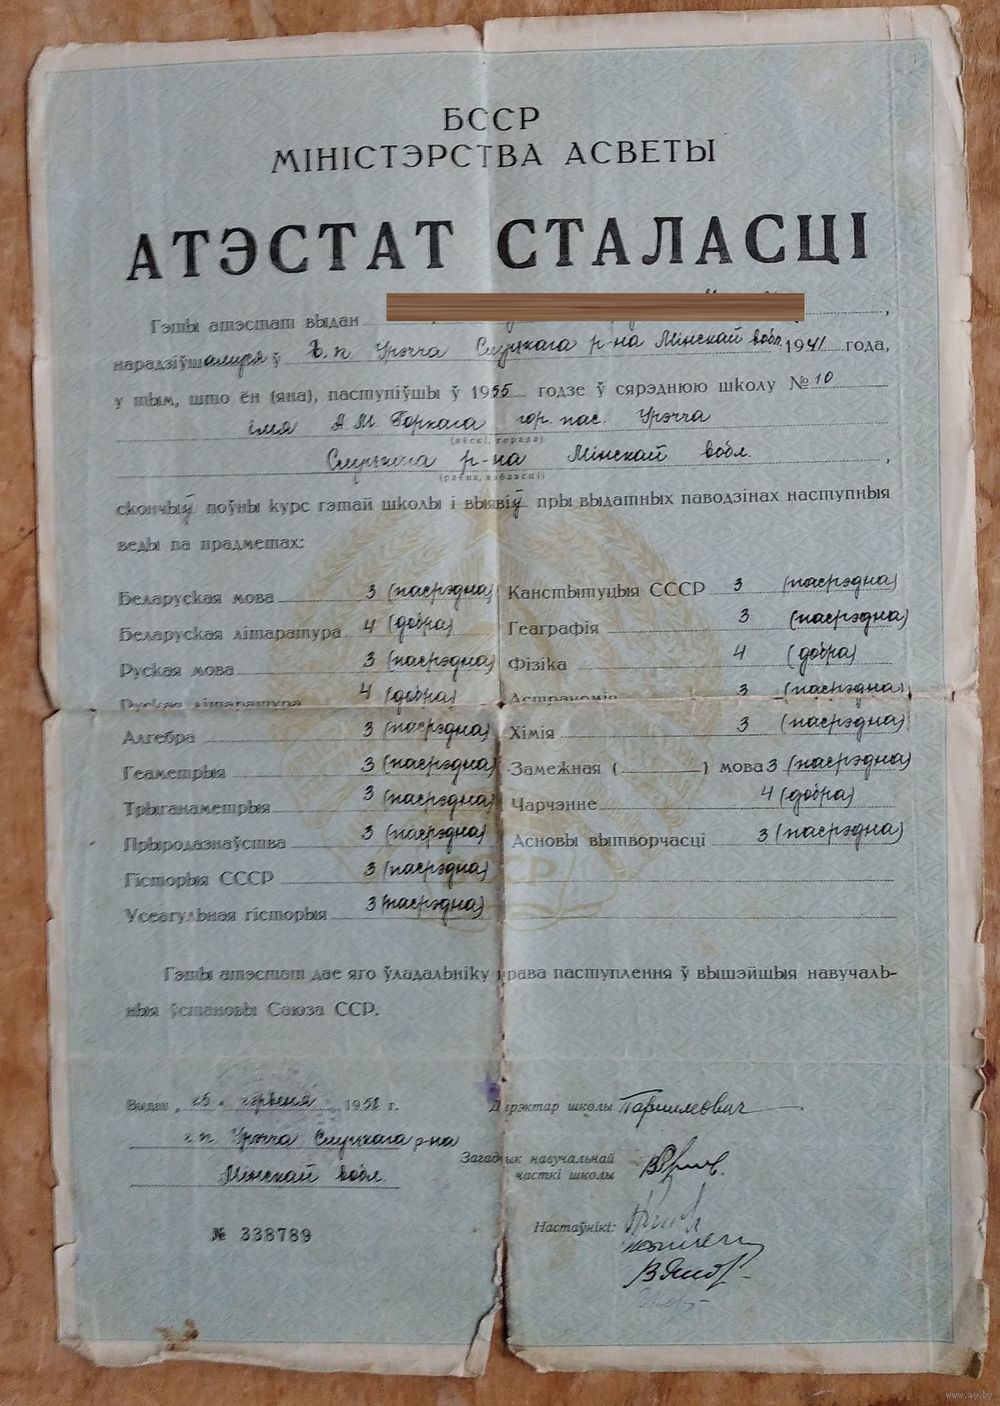 БССР
МІНІСТЭРСТВА АСВЕТЫ
АТЭСТАТ СТАЛАСЦІ
Гэты атэстат выдан
нарадзіўшамуся ў г.п Урэчча Слуцкага р-на Мінскай вобл. 1941 года,
у тым, што ён (яна), паступіўшы ў 1955 годзе ў сярэднюю школу № 10
імя А.М. Горкага гор. пас. Урэчча
(вёскі, горада)
Слуцкага р-на Мінскай вобл.,
(раёна, вобласці)
скончыў поўны курс гэтай школы і выявіў пры выдатных паводзінах наступныя
веды па прадметах:
Беларуская мова 3 (пасрэдна)
Беларуская літаратура 4 (добра)
Руская мова 3 (пасрэдна)
Руская літаратура 4 (добра)
Алгебра 3 (пасрэдна)
Геаметрыя 3 (пасрэдна)
Трыганаметрыя 3 (пасрэдна)
Прыродазнаўства 3 (пасрэдна)
Гісторыя СССР 3 (пасрэдна)
Усеагульная гісторыя 3 (пасрэдна)
Канстытуцыя СССР 3 (пасрэдна)
Геаграфія 3 (пасрэдна)
Фізіка 4 (добра)
Астраномія 3 (пасрэдна)
Хімія 3 (пасрэдна)
Замежная ( ) мова 3 (пасрэдна)
Чарчэнне 4 (добра)
Асновы вытворчасці 3 (пасрэдна)
Гэты атэстат дае яго ўладальніку права паступлення ў вышэйшыя навучаль-
ныя ўстановы Саюза ССР.
Выдан „25“ чэрвеня 1958 г.
г.п. Урэчча Слуцкага р-на
Мінскай вобл.
№ 338789
Дырэктар школы
Загадчык навучальнай
часткі школы
Настаўнікі:
www.ay.by